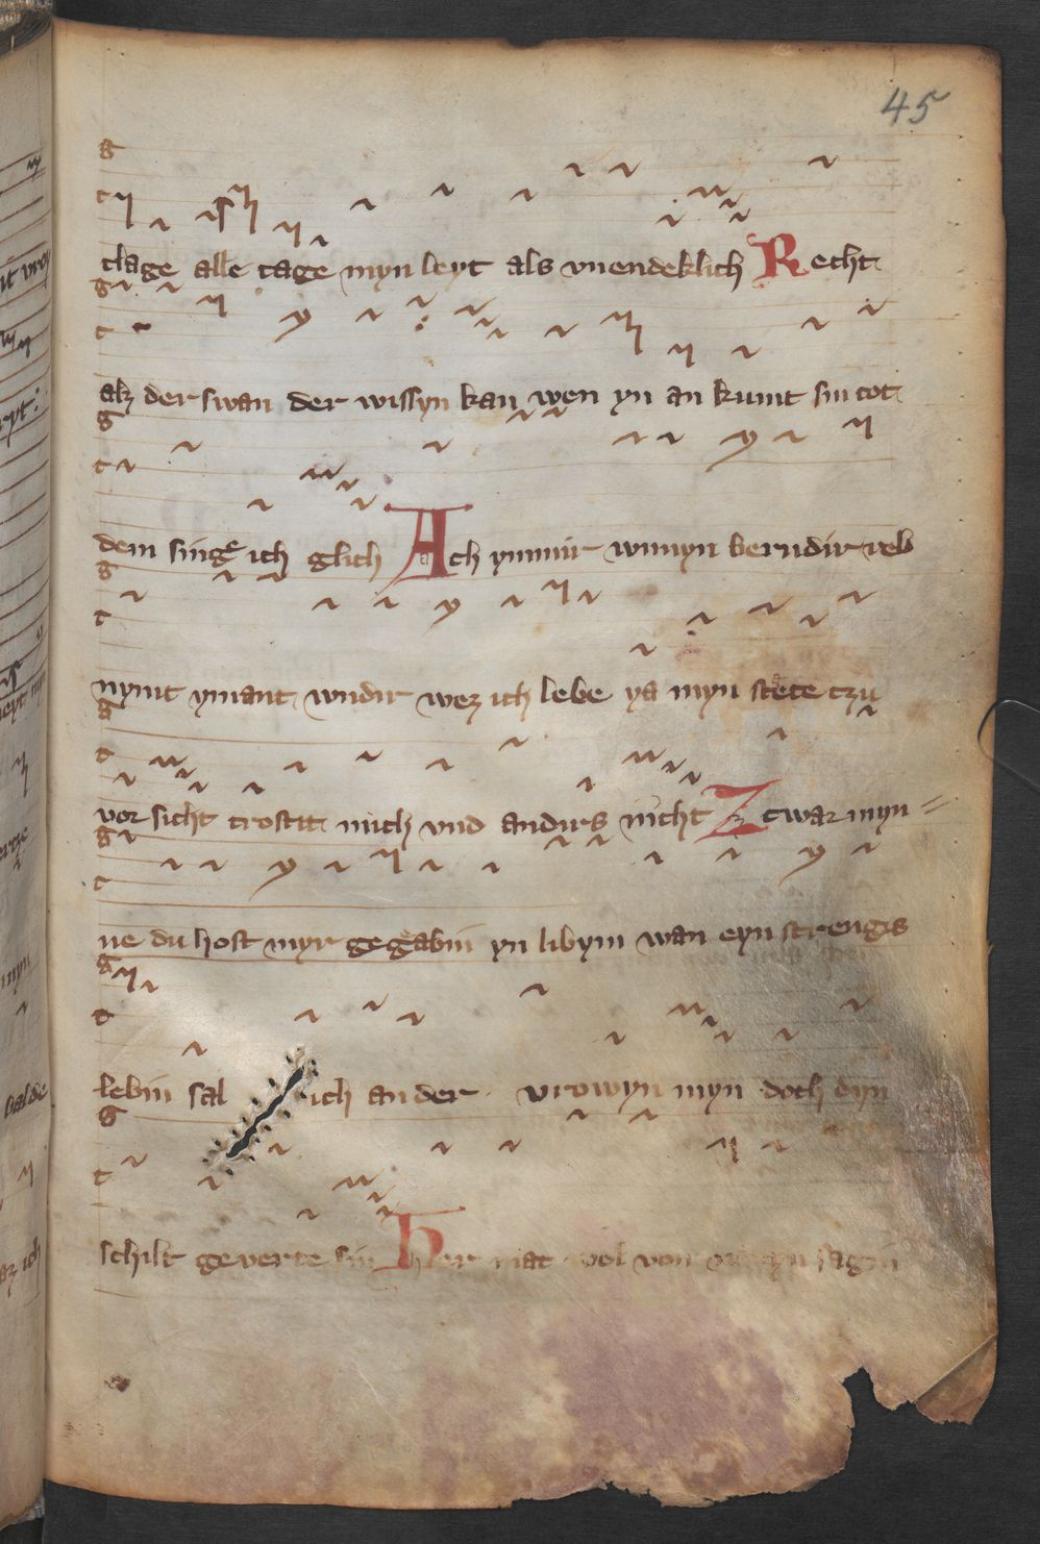 45
clage alle tage myn leyt als vnendeklich Recht
alz der swan der wissyn kan wen yn an kumt sin tot
dem singe ich glich Ach ymmir wunyn berndir reb
nymt ymant wndir wez ich lebe ya myn stete tzu
vor sicht trostit mich vnd andirs nicht Z twar myn=
ne du host myr gegabin yn libym wan eyn strengis
lebin sal ich an der vrowyn myn doch dyn
schilt geverte sin Her mat wol von sagin